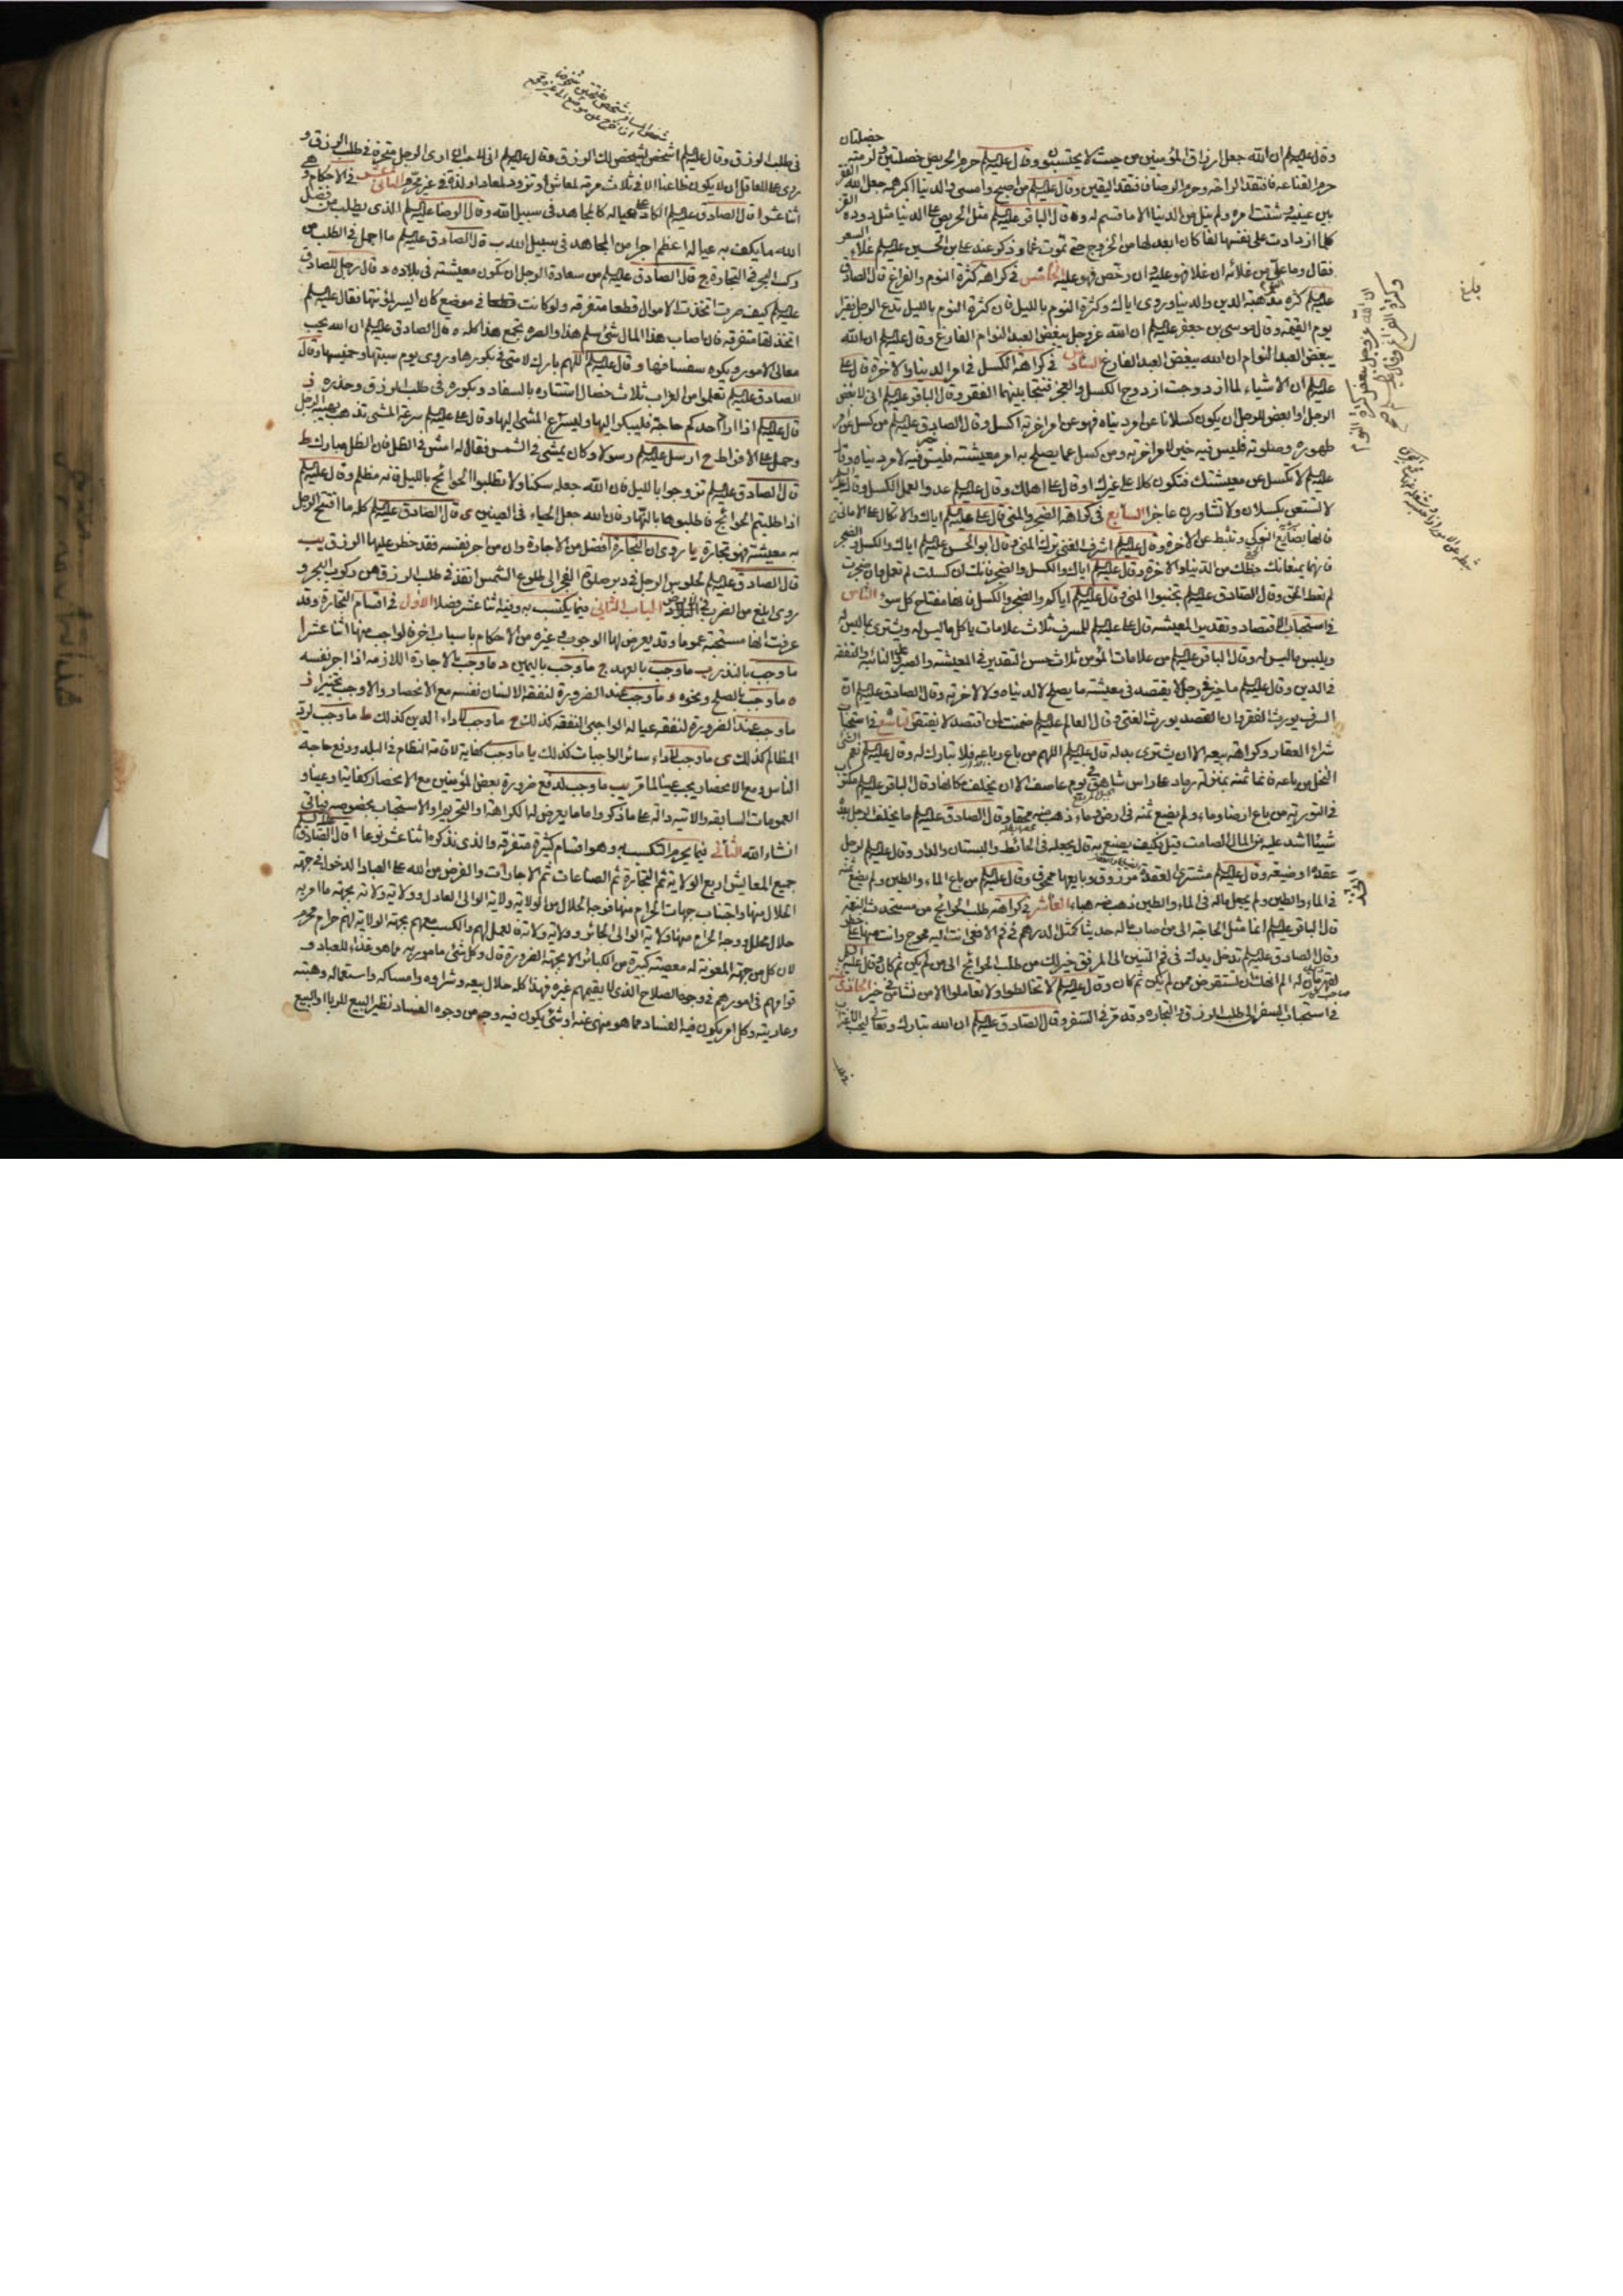 وقال عليه السلم ان الله جعل ارزاق المؤمنين من حيث لا يحتسبون وقال عليه السلم حرم الحريص خصلتين ولزمته خصلتان
حرم القناعة فافتقد الراحة وحرم الرضا فافتقد اليقين وقال عليه السلم من اصبح وامسى والدنيا اكبر همه جعل الله الفقر
بين عينيه وشتت امره ولم ينل من الدنيا الا ما قسم له وقال الباقر عليه السلم مثل الحريص على الدنيا مثل دودة القز
كلما ازدادت على نفسها لفا كان ابعد لها من الخروج حتى تموت غما وذكر عند علي بن الحسين عليه السلم غلاء السعر
فقال وما علي من غلائه ان غلا فهو عليه وان رخص فهو عليه الخامس في كراهة كثرة النوم والفراغ قال الصادق
عليه السلم كثرة النوم مذهبة للدين والدنيا وروى اياك وكثرة النوم بالليل فان كثرة النوم بالليل تدع الرجل فقيرا
يوم القيمة وقال موسى بن جعفر عليه السلم ان الله عز وجل يبغض العبد النوام الفارغ وقال عليه السلم ان الله
يبغض العبد النوام ان الله يبغض العبد الفارغ السادس في كراهة الكسل في امور الدنيا والاخرة قال علي
عليه السلم ان الاشياء لما ازدوجت ازدوج الكسل والعجز فنتجا بينهما الفقر وقال الباقر عليه السلم اني لابغض
الرجل او ابغض للرجل ان يكون كسلانا عن امر دنياه فهو عن امر اخرته اكسل وقال الصادق عليه السلم من كسل عن
طهوره وصلوته فليس فيه خير لامر اخرته ومن كسل عما يصلح به امر معيشته فليس فيه خير لامر دنياه وقال
عليه السلم لا تكسل عن معيشتك فتكون كلا على غيرك او قال على اهلك وقال عليه السلم عدو العمل الكسل وقال عليه السلم
لا تستعن بكسلان ولا تشاورن عاجزا السابع في كراهة الضجر والمنى قال علي عليه السلم اياك والاتكال على الاماني
فانها بضايع النوكى وتثبط عن الاخرة وقال عليه السلم اشرف الغنى ترك المنى وقال ابو الحسن عليه السلم اياك والكسل والضجر
فانهما يمنعانك حظك من الدنيا والاخرة وقال عليه السلم اياك والكسل والضجر فانك ان كسلت لم تعمل وان ضجرت
لم تعط الحق وقال الصادق عليه السلم تجنبوا المنى وقال عليه السلم اياكم والضجر والكسل فانهما مفتاح كل سوء الثامن
في استحباب الاقتصاد وتقدير المعيشة قال علي عليه السلم للمسرف ثلاث علامات ياكل ما ليس له ويشتري ما ليس له
ويلبس ما ليس له وقال الباقر عليه السلم من علامات المؤمن ثلاث حسن التقدير في المعيشة والصبر على النائبة والتفقه
في الدين وقال عليه السلم ما خير في رجل لا يقتصد في معيشته ما يصلح لا لدنياه ولا لاخرته وقال الصادق عليه السلم ان
السرف يورث الفقر وان القصد يورث الغنى وقال العالم عليه السلم ضمنت لمن اقتصد لا يفتقر التاسع في استحباب
شراء العقار وكراهة بيعه الا ان يشتري بدله قال عليه السلم اللهم من باع رباعه فلا تبارك له وقال عليه السلم نعم الشئ
النخل من باعه فانما ثمنه بمنزلة رماد على راس شاهق في يوم عاصف الا ان يخلف مكانها وقال الباقر عليه السلم مكتوب
في التورية من باع ارضا وماء ولم يضع ثمنه في ارض وماء ذهب ثمنه محقا وقال الصادق عليه السلم ما يخلف الرجل بعده
شيئا اشد عليه من المال الصامت قيل فكيف يصنع به قال يجعله في الحائط والبستان والدار وقال عليه السلم لرجل
عقدة او ضيعة وقال عليه السلم مشتري العقدة مرزوق وبايعها ممحوق وقال عليه السلم من باع الماء والطين ولم يضع ثمنه
في الماء والطين ولم يجعل ماله في الماء والطين ذهب ثمنه هباء العاشر في كراهة طلب الحوائج من مستحدث النعمة
قال الباقر عليه السلم انما مثل الحاجة الى من اصاب ماله حديثا كمثل الدرهم في فم الافعى انت اليه محوج وانت منها على خطر
وقال الصادق عليه السلم تدخل يدك في فم التنين الى المرفق خير لك من طلب الحوائج الى من لم يكن ثم كان وقال عليه السلم
لقهرمان له الم انهك ان تستقرض ممن لم يكن ثم كان وقال عليه السلم لا تخالطوا ولا تعاملوا الا من نشا في خير الحادي عشر
في استحباب السفر الى طلب الرزق والتجارة وقد مر في السفر وقال الصادق عليه السلم ان الله تبارك وتعالى ليحب الاغتراب
بلغ
ان الله عز وجل يبغض كثرة النوم
وكثرة الفراغ
في طلب الرزق وقال عليه السلم اشخص يشخص لك الرزق وقال عليه السلم اني لاحب ان ارى الرجل متحرفا في طلب الرزق و
روي على العاقل ان لا يكون ظاعنا الا في ثلاث مرمة لمعاش او تزود لمعاد او لذة في غير محرم الثاني عشر في الاحكام وهي
اثنا عشر ا قال الصادق عليه السلم الكاد على عياله كالمجاهد في سبيل الله وقال الرضا عليه السلم الذي يطلب من فضل
الله ما يكف به عياله اعظم اجرا من المجاهد في سبيل الله ب قال الصادق عليه السلم ما اجمل في الطلب من
ركب البحر في التجارة ج قال الصادق عليه السلم من سعادة الرجل ان تكون معيشته في بلاده د قال رجل للصادق
عليه السلم كيف صرت اتخذت الاموال قطعا متفرقة ولو كانت في موضع كان ايسر لمؤنتها فقال عليه السلم
اتخذتها متفرقة فان اصاب هذا المال شئ سلم هذا والصرة تجمع هذا كله ه قال الصادق عليه السلم ان الله يحب
معالي الامور ويكره سفسافها و قال عليه السلم اللهم بارك لامتي في بكورها وروي يوم سبتها وخميسها وقال
الصادق عليه السلم تعلموا من الغراب ثلاث خصال استتاره بالسفاد وبكوره في طلب الرزق وحذره ز
قال عليه السلم اذا اراد احدكم حاجة فليبكر اليها وليسرع المشي اليها وقال علي عليه السلم سرعة المشي تذهب ببهاء الرجل
وحمل على الافراط ح ارسل عليه السلم رسولا وكان يمشي في الشمس فقال له امش في الظل فان الظل مبارك ط
قال الصادق عليه السلم تزوجوا بالليل فان الله جعله سكنا ولا تطلبوا الحوائج بالليل فانه مظلم وقال عليه السلم
اذا طلبتم الحوائج فاطلبوها بالنهار فان الله جعل الحياء في العينين ي قال الصادق عليه السلم كل ما افتتح الرجل
به معيشته فهو تجارة يا روي ان التجارة افضل من الاجارة وان من اجر نفسه فقد حظر عليها الرزق يب
قال الصادق عليه السلم لجلوس الرجل في دبر صلوة الفجر الى طلوع الشمس انفذ في طلب الرزق من ركوب البحر و
روي ابلغ من الضرب في الارض الباب الثاني فيما يكتسب به وفيه اثنا عشر فصلا الاول في اقسام التجارة وقد
عرفت انها مستحبة عموما وقد يعرض لها الوجوب وغيره من الاحكام باسباب اخر فالواجب منها اثنا عشر ا
ما وجب بالنذر ب ما وجب بالعهد ج ما وجب باليمين د ما وجب بالاجارة اللازمة اذا اجر نفسه
ه ما وجب بالصلح ونحوه و ما وجب عند الضرورة لنفقة الانسان نفسه مع الانحصار والا وجب تخييرا ز
ما وجب عند الضرورة لنفقة عياله الواجبي النفقة كذلك ح ما وجب لاداء الدين كذلك ط ما وجب لرد
المظالم كذلك ي ما وجب لاداء سائر الواجبات كذلك يا ما وجب كفاية لاقامة النظام في البلد ورفع حاجة
الناس ومع الانحصار يجب عينا لما مر يب ما وجب لدفع ضرورة بعض المؤمنين مع الانحصار كفاية او عينا و
العمومات السابقة والاتية دالة على ما ذكر واما ما يعرض له الكراهة او التحريم او الاستحباب بخصوصه فياتي
انشاء الله الثاني فيما يحرم التكسب به وهو اقسام كثيرة متفرقة والذي نذكره اثنا عشر نوعا ا قال الصادق عليه السلم
جميع المعايش اربع الولاية ثم التجارة ثم الصناعات ثم الاجارات والفرض من الله على العباد الدخول في جهة
الحلال منها واجتناب جهات الحرام منها فوجه الحلال من الولاية ولاية الوالي العادل وولاية ولاته بجهة ما امر به
حلال محلل ووجه الحرام منها ولاية الوالي الجائر وولاية ولاته فالعمل لهم والكسب معهم بجهة الولاية لهم حرام محرم
لان كل من جهة المعونة له معصية كبيرة من الكبائر الا بجهة الضرورة قال وكل شئ مامور به مما هو غذاء للعباد و
قوامهم في امورهم في وجوه الصلاح الذي لا يقيمهم غيره فهذا كله حلال بيعه وشراؤه وامساكه واستعماله وهبته
وعاريته وكل امر يكون فيه الفساد مما هو منهي عنه او شئ يكون فيه وجه من وجوه الفساد نظير البيع بالربا او البيع